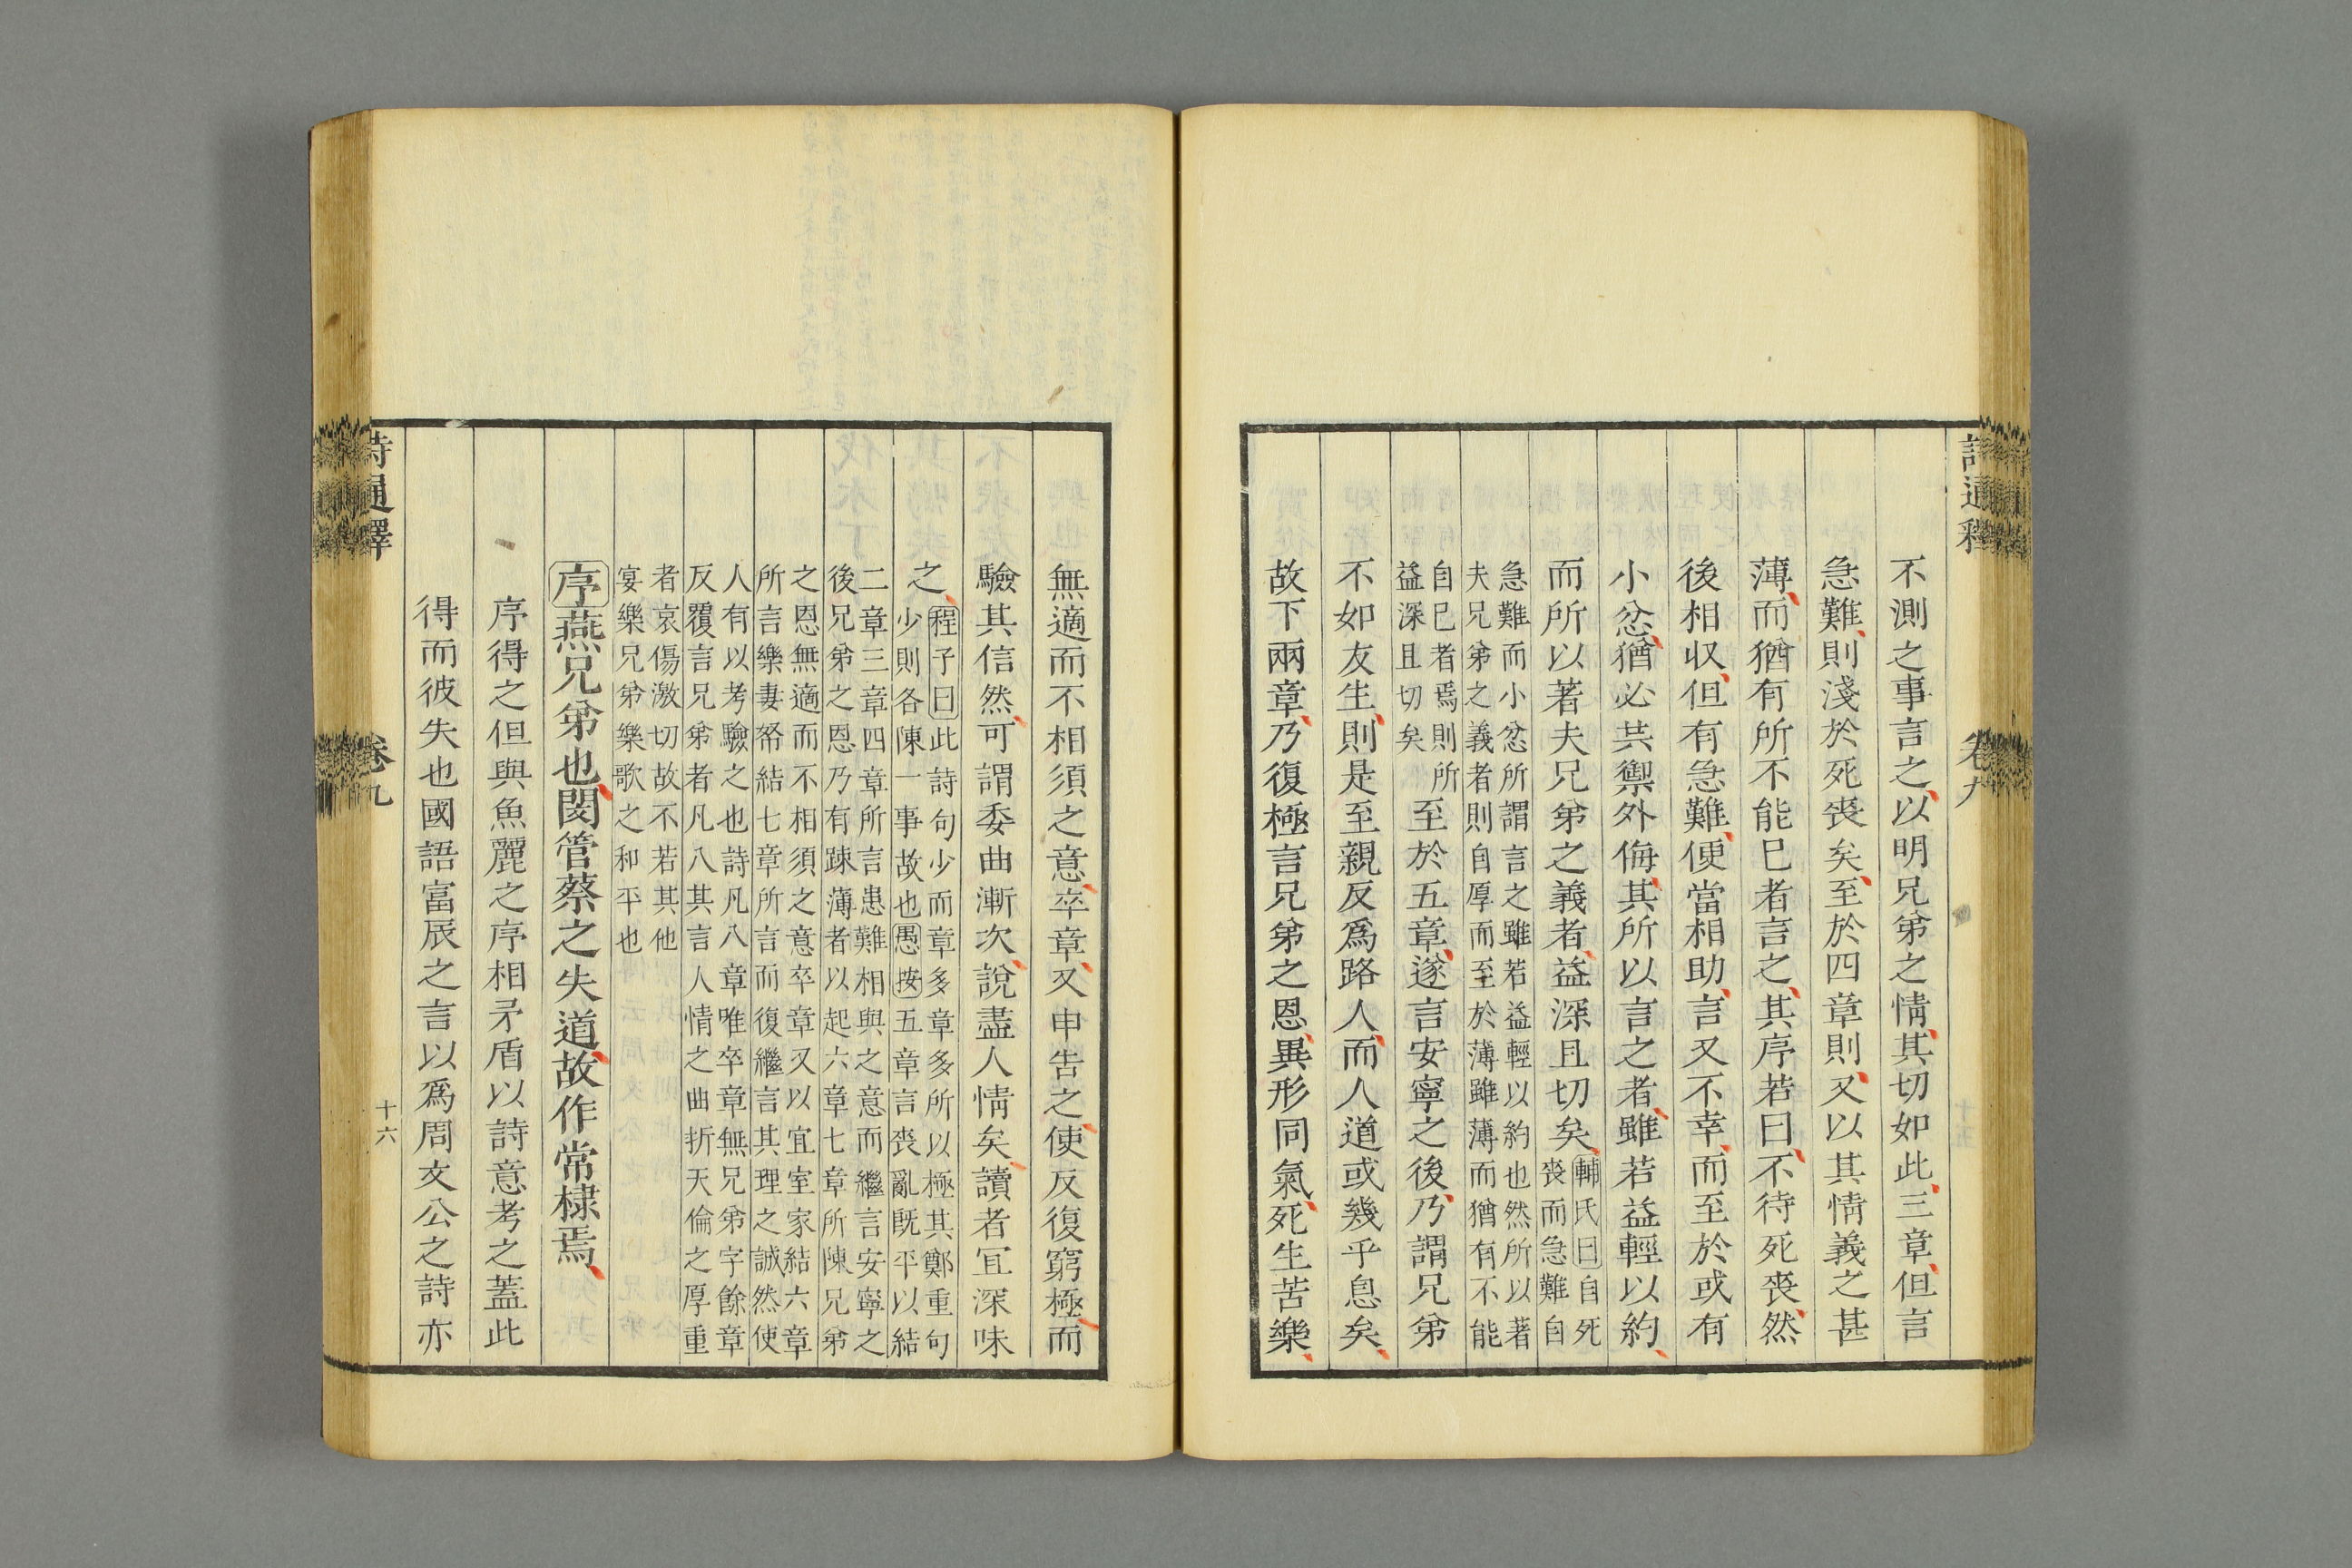 詩通釋 卷九
不測之事言之以明兄弟之情其切如此三章但言
急難則淺於死喪矣至於四章則又以其情義之甚
薄而猶有所不能已者言之其序若曰不待死喪然
後相収但有急難便當相助言又不幸而至於或有
小忿猶必共禦外侮其所以言之者雖若益輕以約
而所以著夫兄弟之義者益深且切矣
輔氏曰自死
喪而急難自
急難而小忿所謂言之雖若益輕以約也然所以著
夫兄弟之義者則自厚而至於薄雖薄而猶有不能
自已者焉則所
益深且切矣
至於五章遂言安寧之後乃謂兄弟
不如友生則是至親反爲路人而人道或幾乎息矣
故下兩章乃復極言兄弟之恩異形同氣死生苦樂
無適而不相須之意卒章又申告之使反復窮極而
驗其信然可謂委曲漸次說盡人情矣讀者宜深味
之
程子曰此詩句少而章多章多所以極其鄭重句
少則各陳一事故也愚按五章言喪亂既平以結
二章三章四章所言患難相與之意而繼言安寧之
後兄弟之恩乃有踈薄者以起六章七章所陳兄弟
之恩無適而不相須之意卒章又以宜室家結六章
所言樂妻帑結七章所言而復繼言其理之誠然使
人有以考驗之也詩凡八章唯卒章無兄弟字餘章
反覆言兄弟者凡八其言人情之曲折天倫之厚重
者哀傷激切故不若其他
宴樂兄弟樂歌之和平也
序燕兄弟也閔管蔡之失道故作常棣焉
序得之但與魚麗之序相矛盾以詩意考之蓋此
得而彼失也國語富辰之言以爲周文公之詩亦
詩通釋 卷九 十六